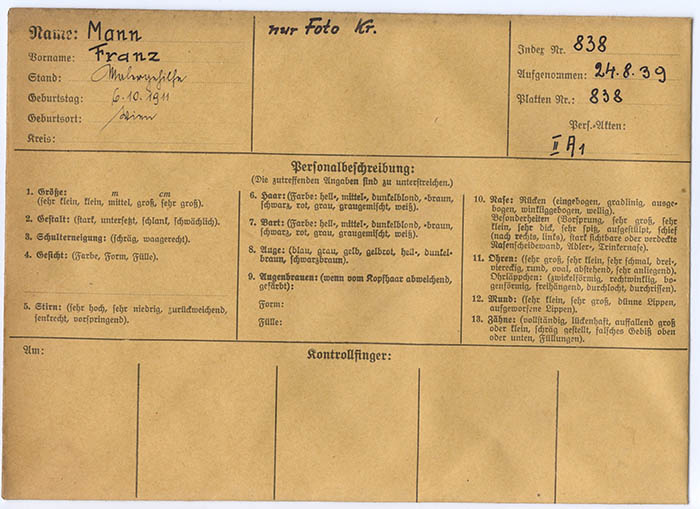 Name: Mann
Vorname: Franz
Stand: Malergehilfe
Geburtstag: 6.10.1911
Geburtsort: Wien
Kreis:
nur Foto Kr.
Index Nr. 838
Aufgenommen: 24.8.39
Platten Nr.: 838
Pers.-Akten:
II A1
Personalbeschreibung:
(Die zutreffenden Angaben sind zu unterstreichen.)
1. Größe: m cm
(sehr klein, klein, mittel, groß, sehr groß).
2. Gestalt: (stark, untersetzt, schlank, schwächlich).
3. Schulterneigung: (schräg, waagerecht).
4. Gesicht: (Farbe, Form, Fülle).
5. Stirn: (sehr hoch, sehr niedrig, zurückweichend,
senkrecht, vorspringend).
6. Haar: (Farbe: hell-, mittel-, dunkelblond, -braun,
schwarz, rot, grau, graugemischt, weiß).
7. Bart: (Farbe: hell-, mittel-, dunkelblond, -braun,
schwarz, rot, grau, graugemischt, weiß).
8. Auge: (blau, grau, gelb, gelbrot, hell-, dunkel-
braun, schwarzbraun).
9. Augenbrauen: (wenn vom Kopfhaar abweichend,
gefärbt):
Form:
Fülle:
10. Nase: Rücken (eingebogen, gradlinig, ausge-
bogen, winkliggebogen, wellig).
Besonderheiten (Vorsprung, sehr groß, sehr
klein, sehr dick, sehr spitz, aufgestülpt, schief
(nach rechts, links), stark sichtbare oder verdeckte
Nasenscheidewand, Adler-, Trinkernase).
11. Ohren: (sehr groß, sehr klein, sehr schmal, drei-,
viereckig, rund, oval, abstehend, sehr anliegend).
Ohrläppchen: (zwickelförmig, rechtwinklig, bo-
genförmig, freihängend, durchlocht, durchrissen).
12. Mund: (sehr klein, sehr groß, dünne Lippen,
aufgeworfene Lippen).
13. Zähne: (vollständig, lückenhaft, auffallend groß
oder klein, schräg gestellt, falsches Gebiß oben
oder unten, Füllungen).
Am:
Kontrollfinger: